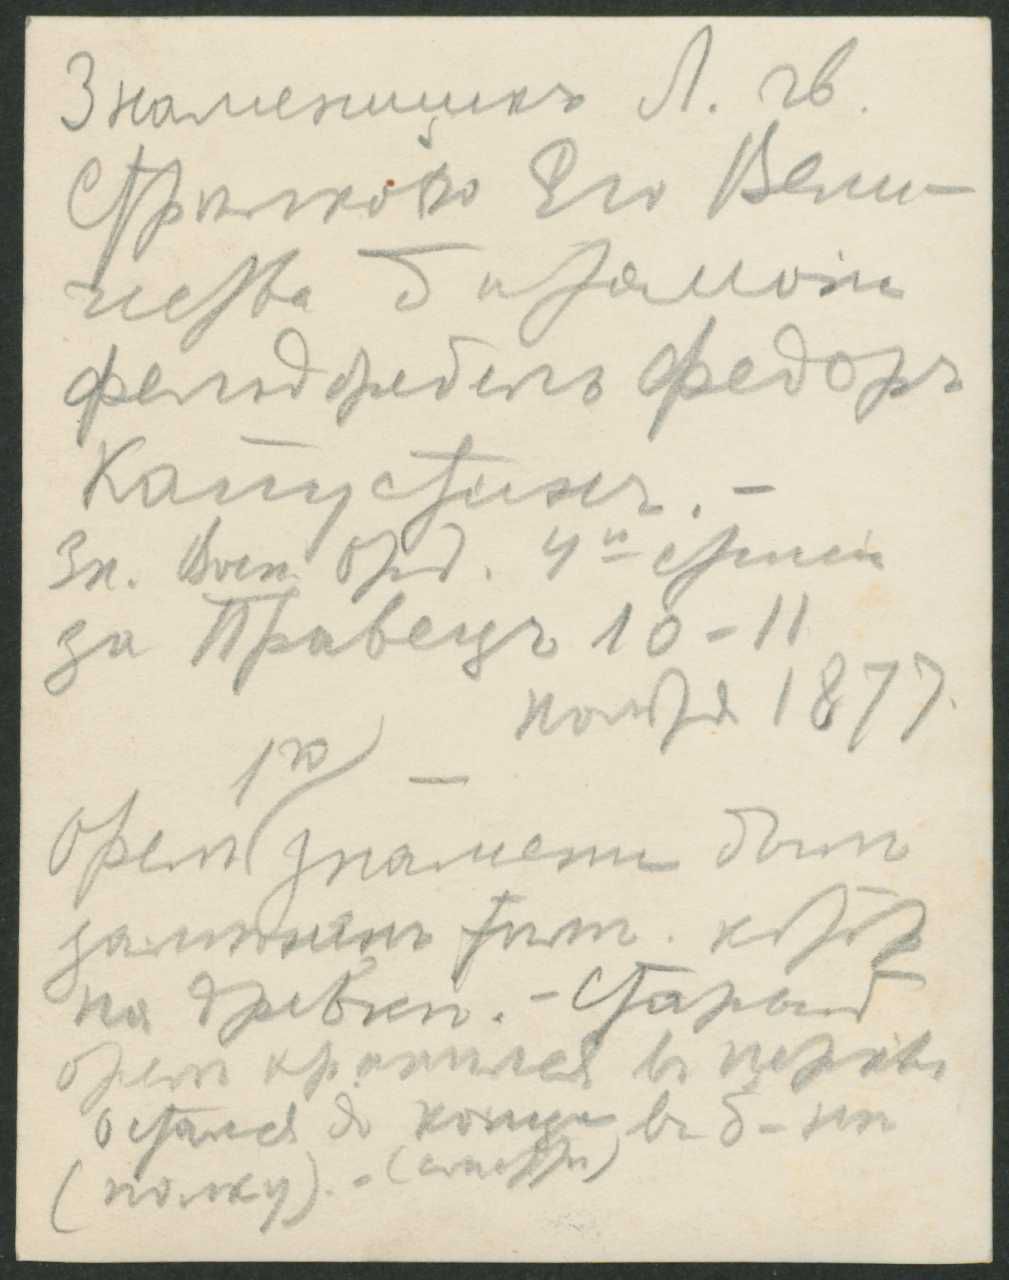 Знаменщикъ Л. гв.
Стрѣлковаго Его Вели-
чества баталіона
фельдфебель Федоръ
Капустинъ. -
Зн. Воен. Орд. 4й степени
за Правецъ 10-11
ноября 1877.
1го —
Орелъ знамени былъ
на древкѣ. - Старый
орелъ хранился въ церкви
остался до конца въ б-нѣ
(полку). -